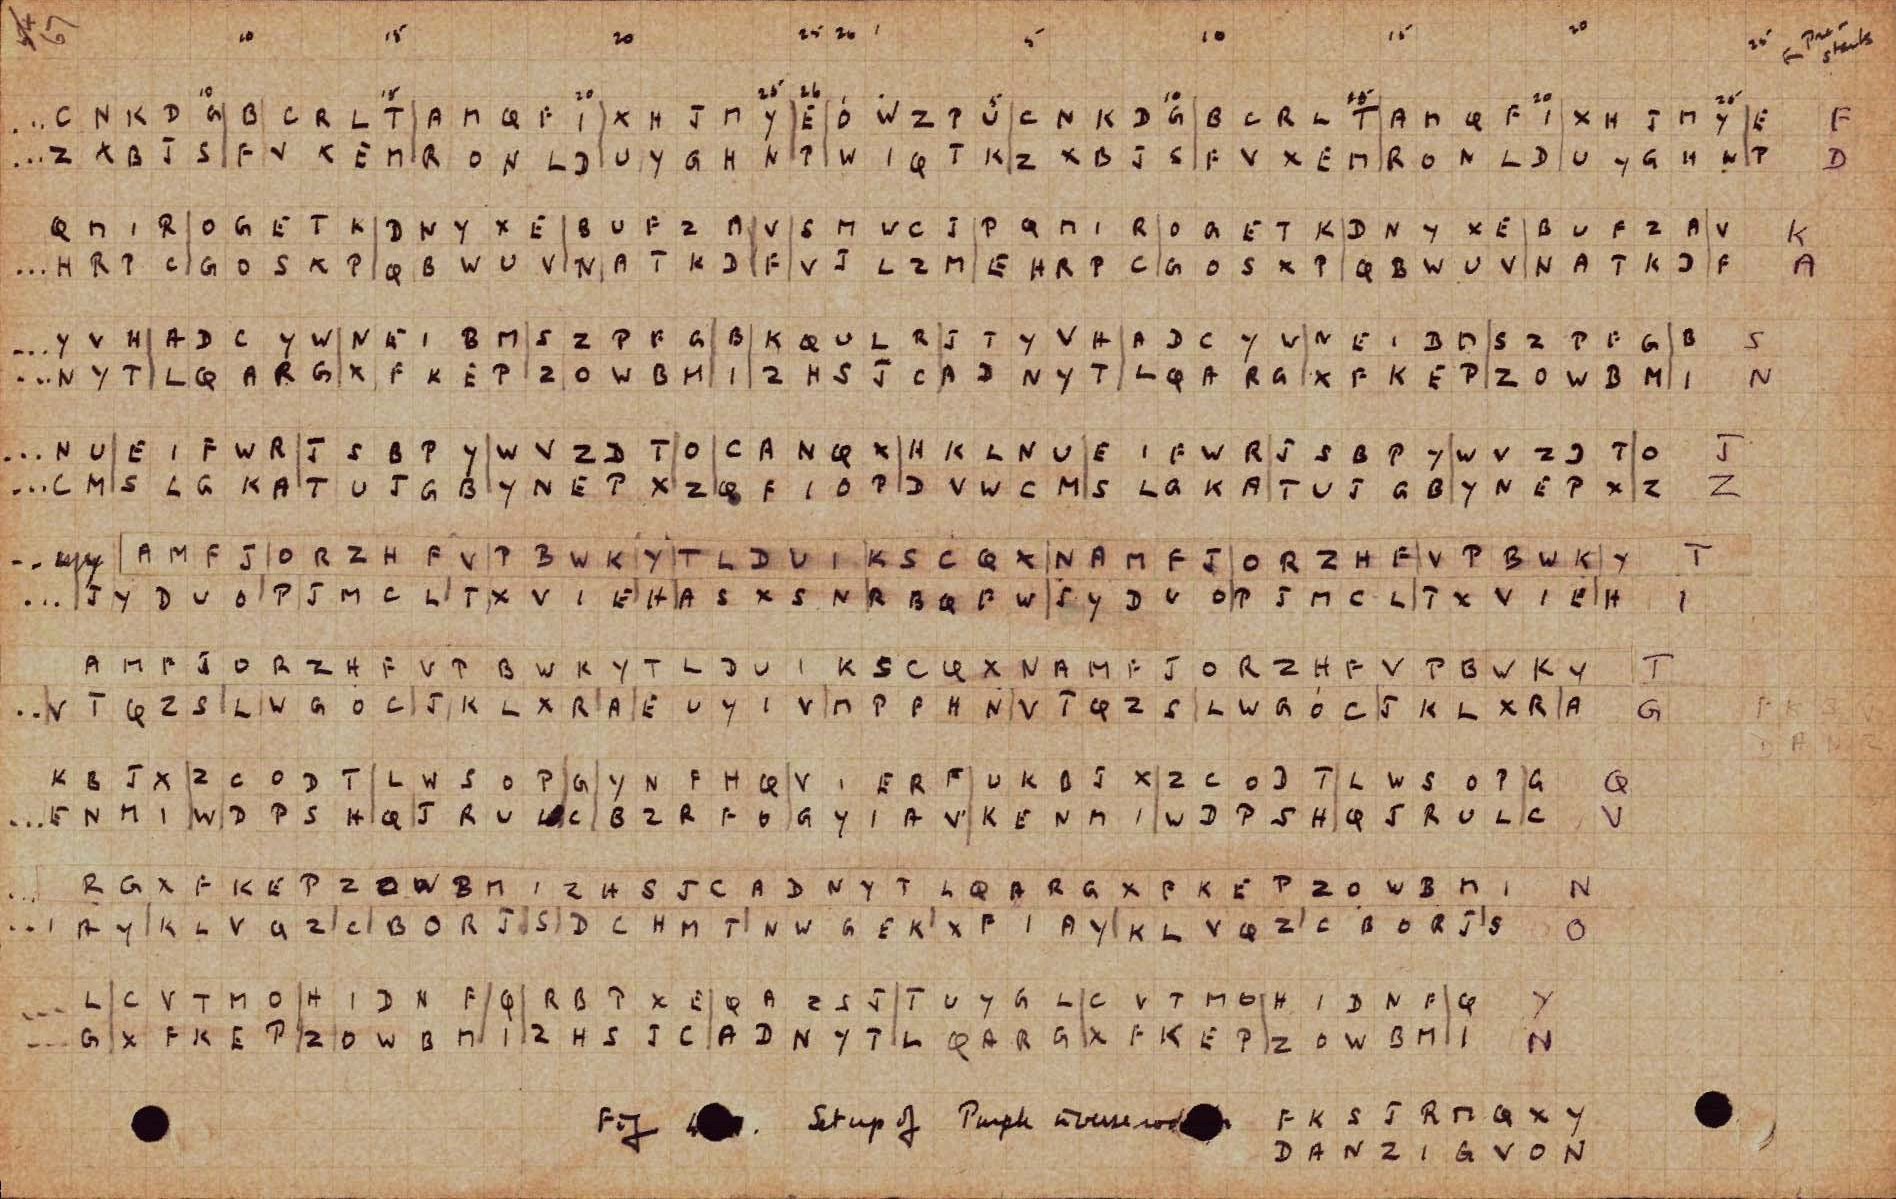 67
10 15 20 25 26 1 5 10 15 20 25
10 15 20 25 26 5 10 15 20 25
...C N K D G B C R L T A M Q F I X H J M Y E O W Z P U C N K D G B C R L T A M Q F I X H J M Y E F
...Z X B J S F V X E M R O N L D U Y G H N P W I Q T K Z X B J S F V X E M R O N L D U Y G H N P D
Q M I R O G E T K D N Y X E B U F Z A V S M W C J P Q M I R O G E T K D N Y X E B U F Z A V K
...H R P C G O S X P Q B W U V N A T K D F V J L Z M E H R P C G O S X P Q B W U V N A T K D F A
...Y V H A D C Y W N E I B M S Z P F G B K Q U L R J T Y V H A D C Y W N E I B M S Z P F G B S
...N Y T L Q A R G X F K E P Z O W B M I Z H S J C A D N Y T L Q A R G X F K E P Z O W B M I N
...N U E I F W R J S B P Y W V Z D T O C A N Q X H K L N U E I F W R J S B P Y W V Z D T O J
...C M S L G K A T U J G B Y N E P X Z Q F I O P D V W C M S L G K A T U J G B Y N E P X Z Z
A M F J O R Z H F V P B W K Y T L D U I K S C Q X N A M F J O R Z H F V P B W K Y T
...J Y D U O P J M C L T X V I E H A S X S N R B Q F W J Y D U O P J M C L T X V I E H I
A M F J O R Z H F V P B W K Y T L D U I K S C Q X N A M F J O R Z H F V P B W K Y T
..V T Q Z S L W G O C J K L X R A E U Y I V M P F H N V T Q Z S L W G O C J K L X R A G
K B J X Z C O D T L W S O P G Y N F H Q V I E R F U K B J X Z C O D T L W S O P G Q
...E N M I W D P S H Q J R U L C B Z R F O G Y I A V K E N M I W D P S H Q J R U L C V
... R G X F K E P Z O W B M I Z H S J C A D N Y T L Q A R G X F K E P Z O W B M I N
...I A Y K L V Q Z C B O R J S D C H M T N W G E K X F I A Y K L V Q Z C B O R J S O
... L C V T M O H I D N F Q R B P X E Q A Z S J T U Y G L C V T M O H I D N F Q Y
... G X F K E P Z O W B M I Z H S J C A D N Y T L Q A R G X F K E P Z O W B M I N
Fig . Set up of Purple F K S J R M Q X Y
D A N Z I G V O N